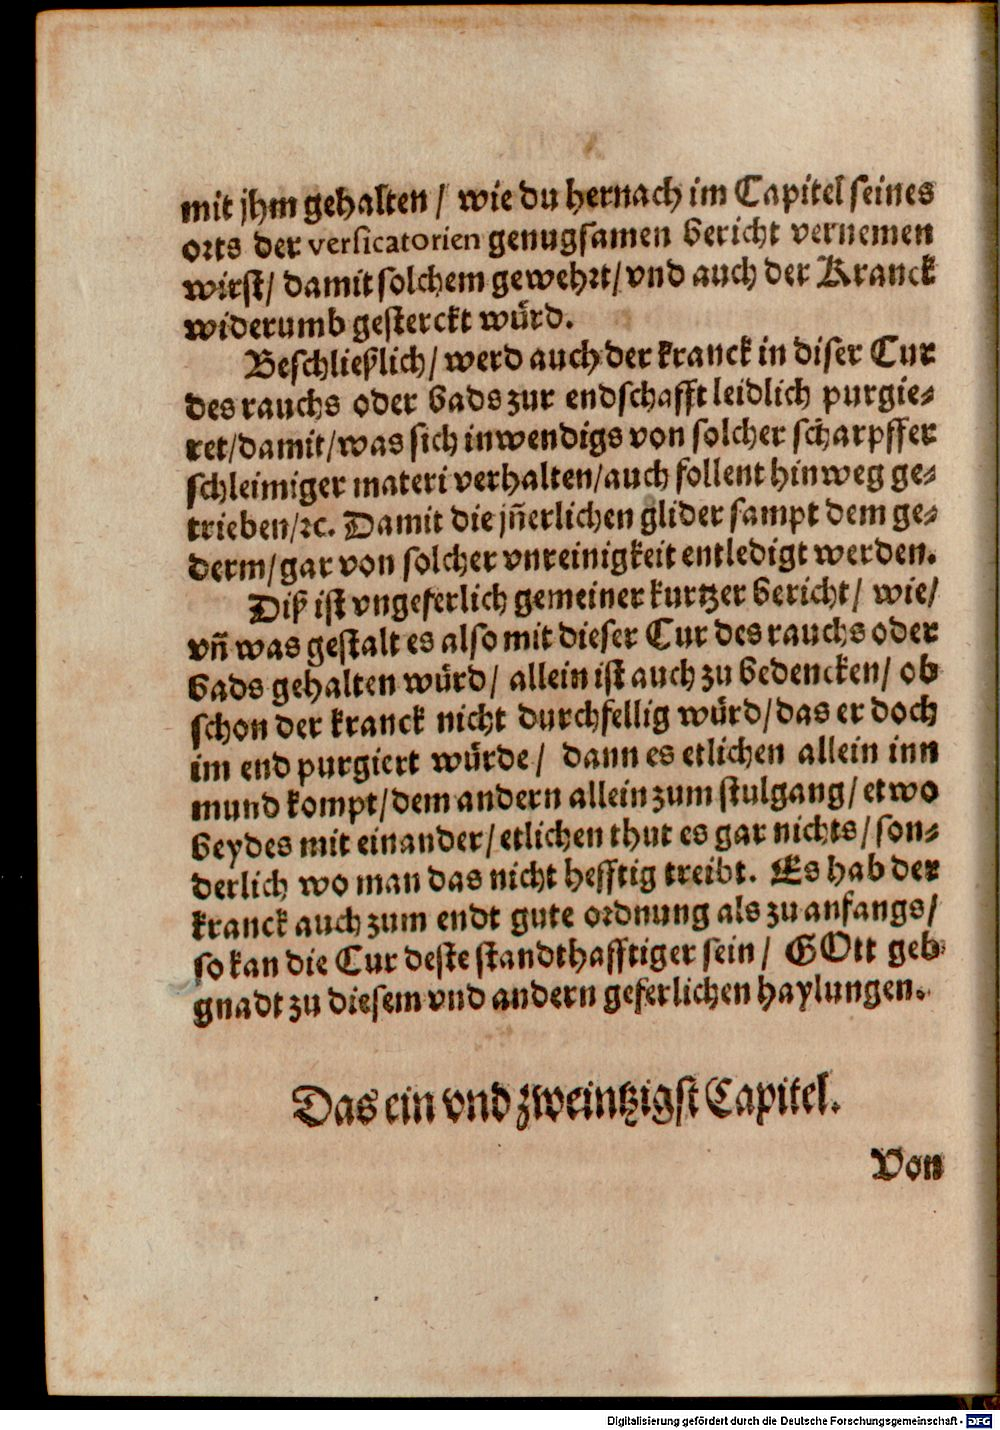 mit jhm gehalten / wie du hernach im Capitel seines
orts der versicatorien genugsamen bericht vernemen
wirst / damit solchem gewehrt / vnd auch der Kranck
widerumb gesterckt würd.
Beschließlich / werd auch der kranck in diser Cur
des rauchs oder bads zur endschafft leidlich purgie-
ret / damit / was sich inwendigs von solcher scharpffer
schleimiger materi verhalten / auch follent hinweg ge-
trieben / ꝛc. Damit die jñerlichen glider sampt dem ge-
derm / gar von solcher vnreinigkeit entledigt werden.
Diß ist vngeferlich gemeiner kurtzer bericht / wie /
vñ was gestalt es also mit dieser Cur des rauchs oder
bads gehalten würd / allein ist auch zu bedencken / ob
schon der kranck nicht durchfellig würd / das er doch
im end purgiert würde / dann es etlichen allein inn
mund kompt / dem andern allein zum stulgang / etwo
beydes mit einander / etlichen thut es gar nichts / son-
derlich wo man das nicht hefftig treibt. Es hab der
kranck auch zum endt gute ordnung als zu anfangs /
so kan die Cur deste standthafftiger sein / GOtt geb
gnadt zu diesem vnd andern geferlichen haylungen.
Das ein vnd zweintzigst Capitel.
Von
Digitalisierung gefördert durch die Deutsche Forschungsgemeinschaft - DFG